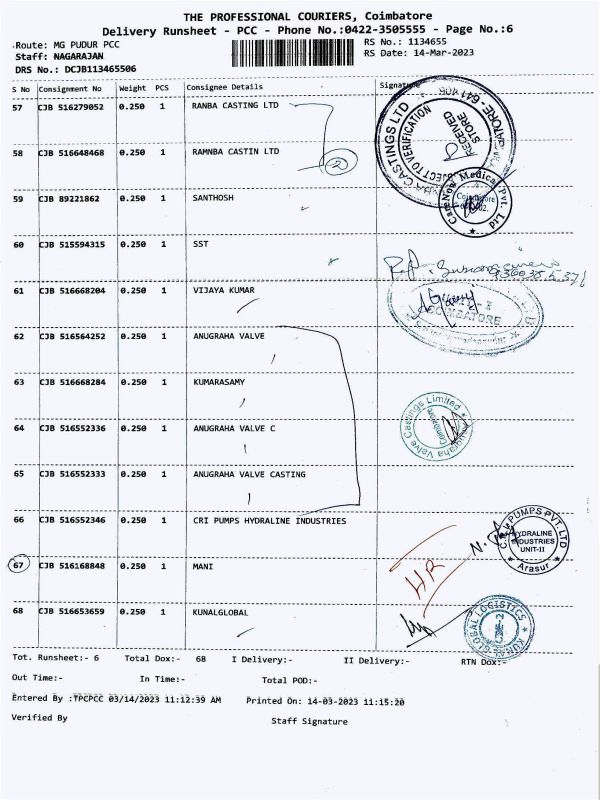 THE PROFESSIONAL COURIERS, Coimbatore
Delivery Runsheet - PCC - Phone No.:0422-3505555 - Page No.:6
Route: MG PUDUR PCC
RS No.: 1134655
Staff: NAGARAJAN
RS Date: 14-Mar-2023
DRS No.: DCJB113465506
S No Consignment No Weight PCS Consignee Details Signature
57 CJB 516279052 0.250 1 RANBA CASTING LTD
58 CJB 516648468 0.250 1 RAMNBA CASTIN LTD
2
59 CJB 89221862 0.250 1 SANTHOSH
60 CJB 515594315 0.250 1 SST
61 CJB 516668204 0.250 1 VIJAYA KUMAR
62 CJB 516564252 0.250 1 ANUGRAHA VALVE
63 CJB 516668284 0.250 1 KUMARASAMY
64 CJB 516552336 0.250 1 ANUGRAHA VALVE C
65 CJB 516552333 0.250 1 ANUGRAHA VALVE CASTING
66 CJB 516552346 0.250 1 CRI PUMPS HYDRALINE INDUSTRIES
67 CJB 516168848 0.250 1 MANI
68 CJB 516653659 0.250 1 KUNALGLOBAL
CASTINGS LTD
SUBJECT TO VERIFICATION
RECEIVED
STORE
641 406
CareNow Medical Pvt. Ltd
Coimbatore
COIMBATORE
Anugraha Valve Castings Limited
Coimbatore
PUMPS PVT. LTD
HYDRALINE
INDUSTRIES
UNIT-II
Arasur
HR
GLOBAL LOGISTICS
Tot. Runsheet:- 6 Total Dox:- 68 I Delivery:- II Delivery:- RTN Dox:-
Out Time:- In Time:- Total POD:-
Entered By :TPCPCC 03/14/2023 11:12:39 AM Printed On: 14-03-2023 11:15:20
Verified By Staff Signature